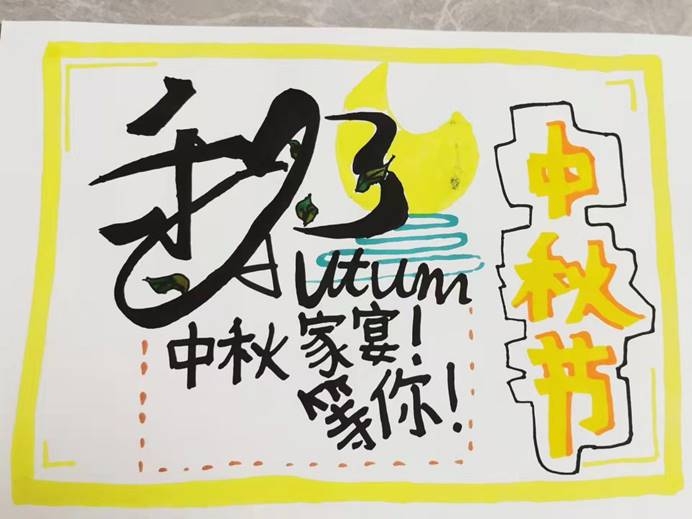 秋
Autum
中秋 家宴！
等你！
中秋节